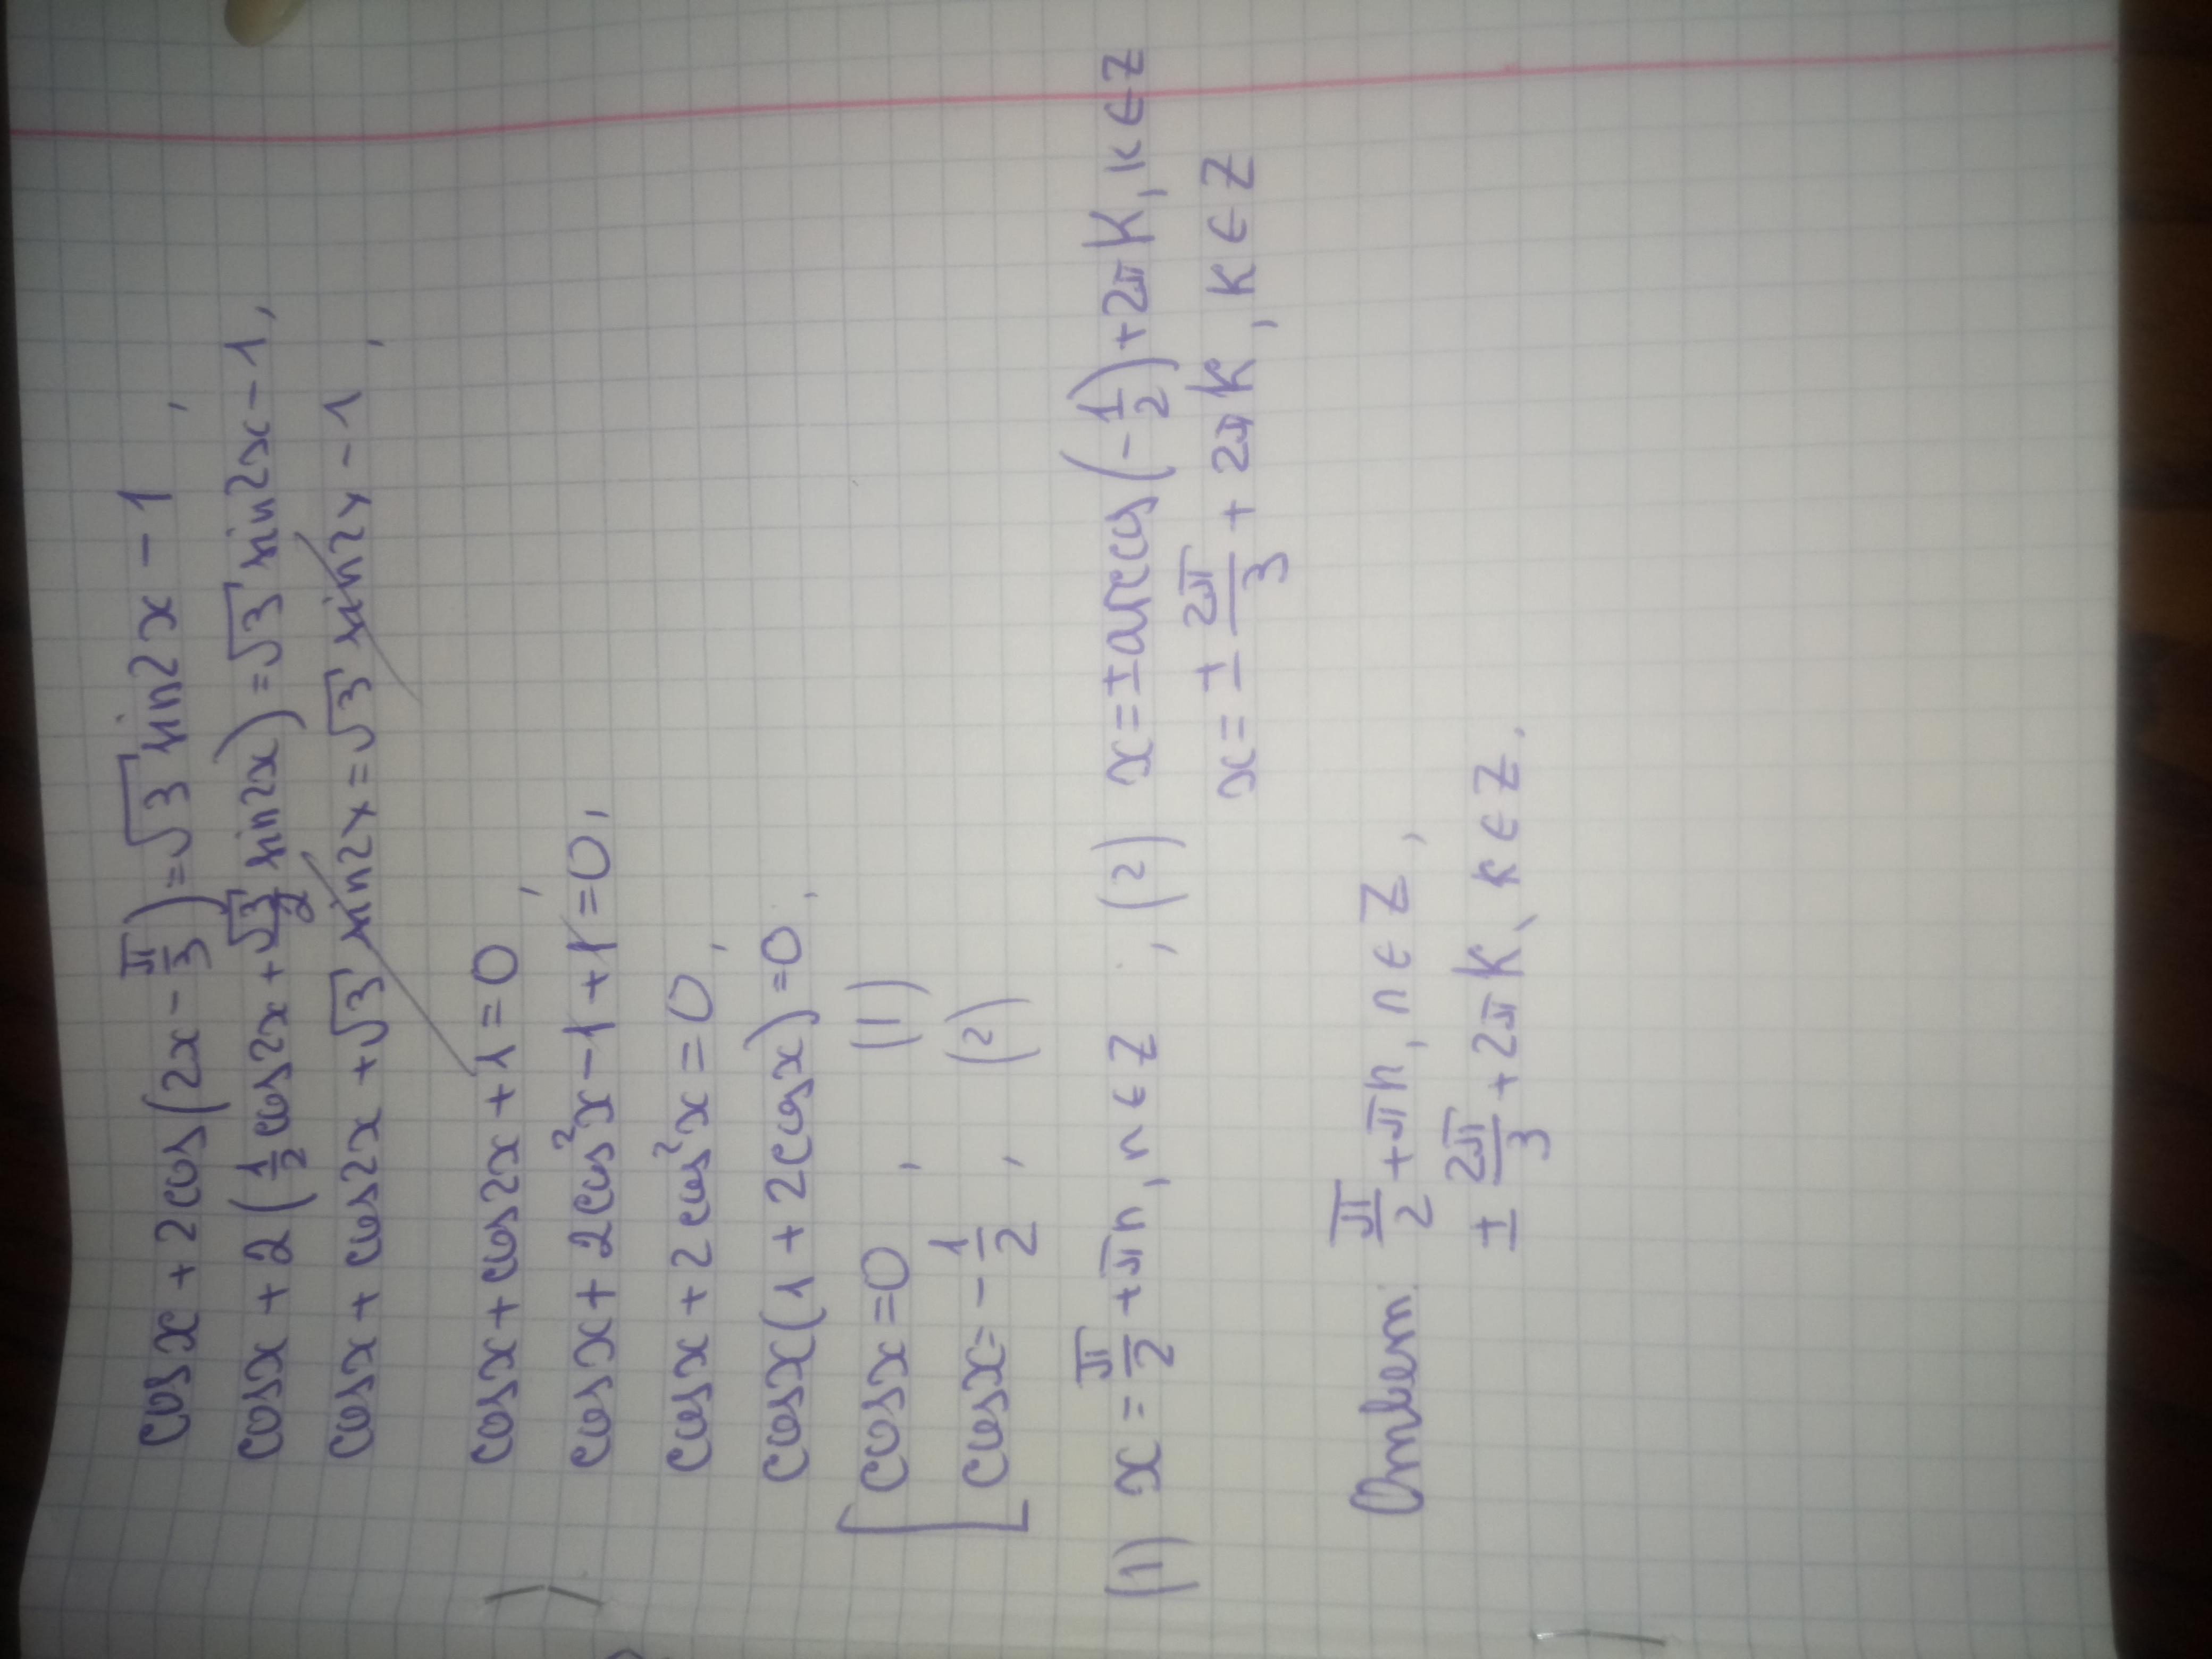 cosx + 2cos(2x - π/3) = √3 sin2x - 1,
cosx + 2(1/2 cos2x + √3/2 sin2x) = √3 sin2x - 1,
cosx + cos2x + √3 sin2x = √3 sin2x - 1,
cosx + cos2x + 1 = 0,
cosx + 2cos²x - 1 + 1 = 0,
cosx + 2cos²x = 0,
cosx(1 + 2cosx) = 0,
[ cosx = 0, (1)
cosx = - 1/2, (2)
(1) x = π/2 + πn, n ∈ Z, (2) x = ± arccos(- 1/2) + 2πk, k ∈ Z
x = ± 2π/3 + 2πk, k ∈ Z
Ответ: π/2 + πn, n ∈ Z,
± 2π/3 + 2πk, k ∈ Z.